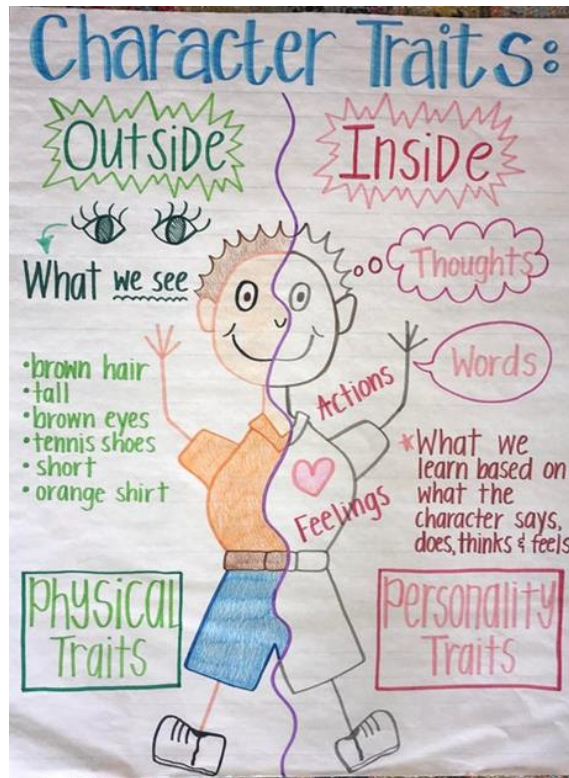 Character Traits:
Outside
What we see
•brown hair
•tall
•brown eyes
•tennis shoes
•short
•orange shirt
Physical
Traits
Inside
Thoughts
Words
Actions
Feelings
*What we
learn based on
what the
character says,
does, thinks & feels
Personality
Traits